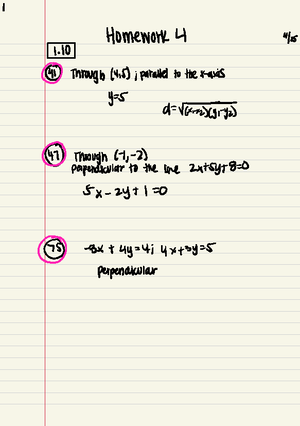 1
Homework 4
4/25
1.10
41 Through (4,5) ; parallel to the x-axis
y=5
d=√(x-x2)(y1-y2)
47 Through (-1,-2)
perpendicular to the line 2x+5y+8=0
5x-2y+1=0
75 -3x + 4y=4; 4x+3y=5
perpendicular